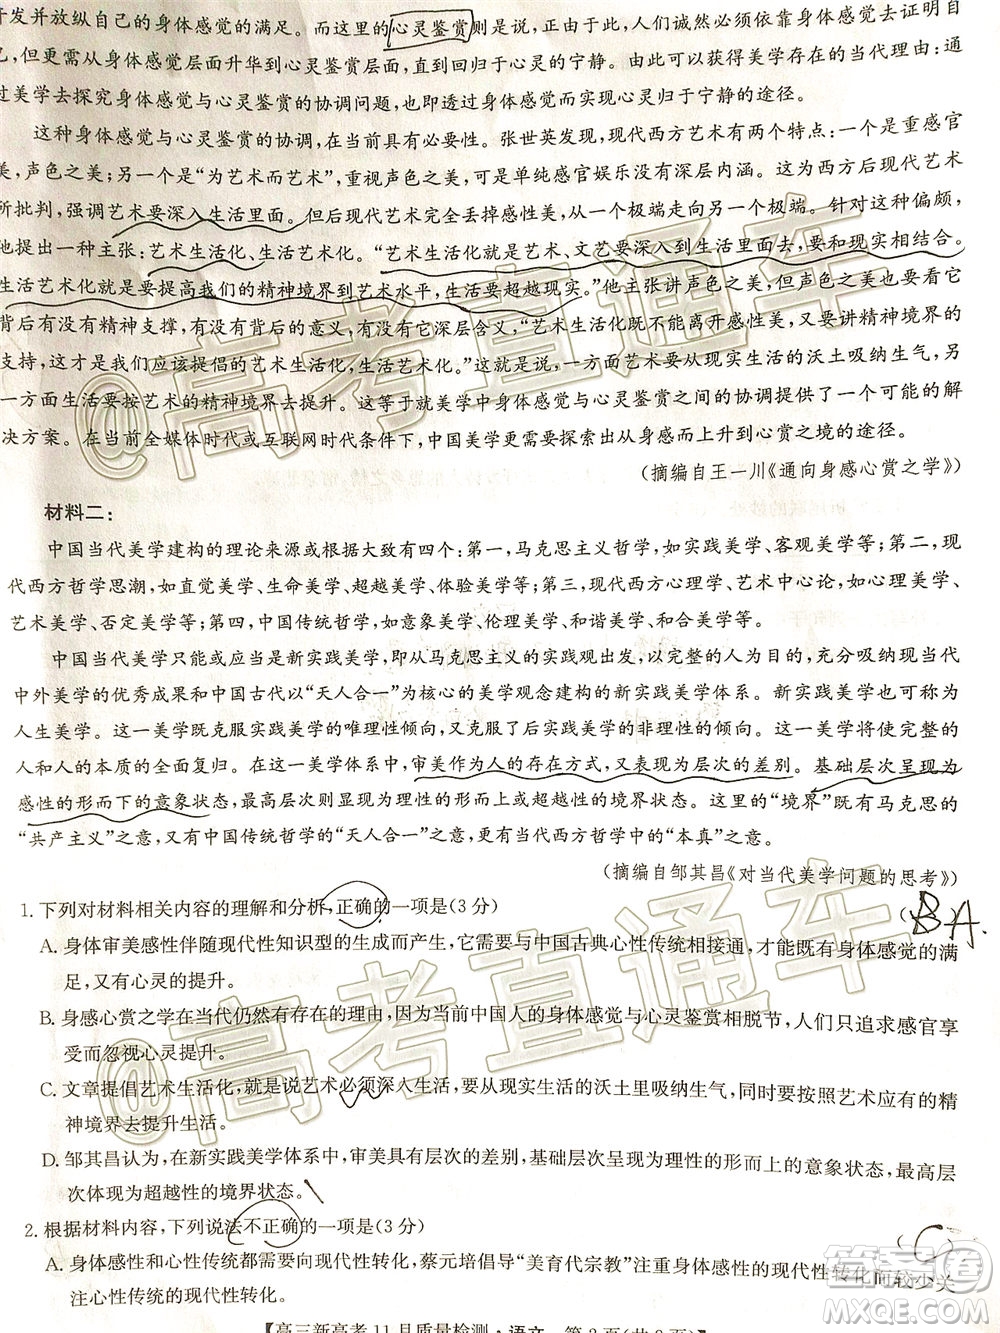 开发并放纵自己的身体感觉的满足。而这里的心灵鉴赏则是说,人们诚然不仅依靠身体感觉去证明自
己,但更需要从身体感觉层面升华到心灵鉴赏层面,由此而获得心灵的宁静。由此可以获得美学存在的当代理由:通
过美学去探究身体感觉与心灵鉴赏的协调问题,也就是探究在身体感觉的满足中实现心灵局于宁静的途径。
这种身体感觉与心灵鉴赏的协调,在当前具有必要性。张世英发现,现代西方艺术有两个特点:一个是重感官
美,声色之美;另一个是“为艺术而艺术”,重视声色之美,可是,单纯感官娱乐的艺术没有深层内涵。这为西方后现代艺术
所批判,强调艺术要深入生活里面。但后现代艺术完全丢掉感性美,从一个极端走向另一个极端。针对这种偏颇,
他提出一种主张:艺术生活化、生活艺术化。“艺术生活化就是艺术、文艺要深入到生活里面去,要和现实相结合。
生活艺术化就是要提高我们的精神境界到艺术水平,生活要超越现实。”他主张讲声色之美,但要看这种声色之美
背后有没有精神支撑,有没有背后的意义,有没有它深层含义,“艺术生活化就是不能离开感性美,又要讲精神境界的
支持,这就是我们应该提倡的艺术生活化,生活艺术化。”这里的探讨在于,一方面艺术要从现实生活的沃土吸纳生气,另
一方面生活要按艺术的精神境界去提升。这等于就美学中身体感觉与心灵鉴赏之间的协调提供了一种可能的解
决方案。在当前全媒体时代或互联网时代条件下,中国美学更需要探索出从身感而上升到心赏之境的途径。
(摘编自王一川《通向身感心赏之学》)
材料二:
中国当代美学建构的理论来源或根据大致有四个:第一,马克思主义哲学,如实践美学、客观美学等;第二,现
代西方哲学思潮,如直觉美学、生命美学、超越美学、体验美学等;第三,现代西方心理学、艺术中心论,如心理美学、
艺术美学、否定美学等;第四,中国传统哲学,如意象美学、伦理美学、和谐美学、和合美学等。
中国当代美学只能或应当是新实践美学,即从马克思主义的实践观出发,以完整的人为目的,充分吸纳当代
中外美学的优秀成果和中国古代以“天人合一”为核心的美学观念建构的新实践美学体系。新实践美学亦可称为
人生美学。这一美学既克服实践美学的唯理性倾向,又克服了后实践美学的非理性的倾向。这一美学使完整的人
和人的本质的全面复归。在这一美学体系中,审美作为人的存在方式,又表现为层次的差别。基础层次呈现为
感性的形而下的意象状态,最高层次则显现为理性的形而上或超越性的境界状态。这里的“境界”既有马克思的
“共产主义”之意,又有中国传统哲学的“天人合一”之意,更有当代西方哲学中的“本真”之意。
(摘编自邹其昌《对当代美学问题的思考》)
1.下列对材料相关内容的理解和分析,正确的一项是(3分) (B A.
A.身体审美感性伴随现代性知识型的生成而产生,它需要与中国古典心性传统相接通,才能既有身体感觉的满
足,又有心灵的提升。
B.身感心赏之学在当代仍然有存在的理由,因为当前中国人的身体感觉与心灵鉴赏相脱节,人们只追求感官享
受而忽视心灵提升。
C.文章提倡艺术生活化,就是说艺术必须深入生活,要从现实生活的沃土里吸纳生气,同时还要按照艺术的精
神境界去提升生活。
D.邹其昌认为,在新实践美学体系中,审美具有层次的差别,基础层次体现为理性的形而上的意象状态,最高层
次体现为超越性的境界状态。
2.根据材料内容,下列说法不正确的一项是(3分) (C
A.身体感性和心性传统都需要向现代性转化,蔡元培倡导“美育代宗教”更重视身体感性的现代性转化而较少关
注心性传统的现代性转化。
【高三新高考11月质量检测·语文 第2页(共8页)】
@高考直通车
@高考直通车
答案圈
MXQE.COM